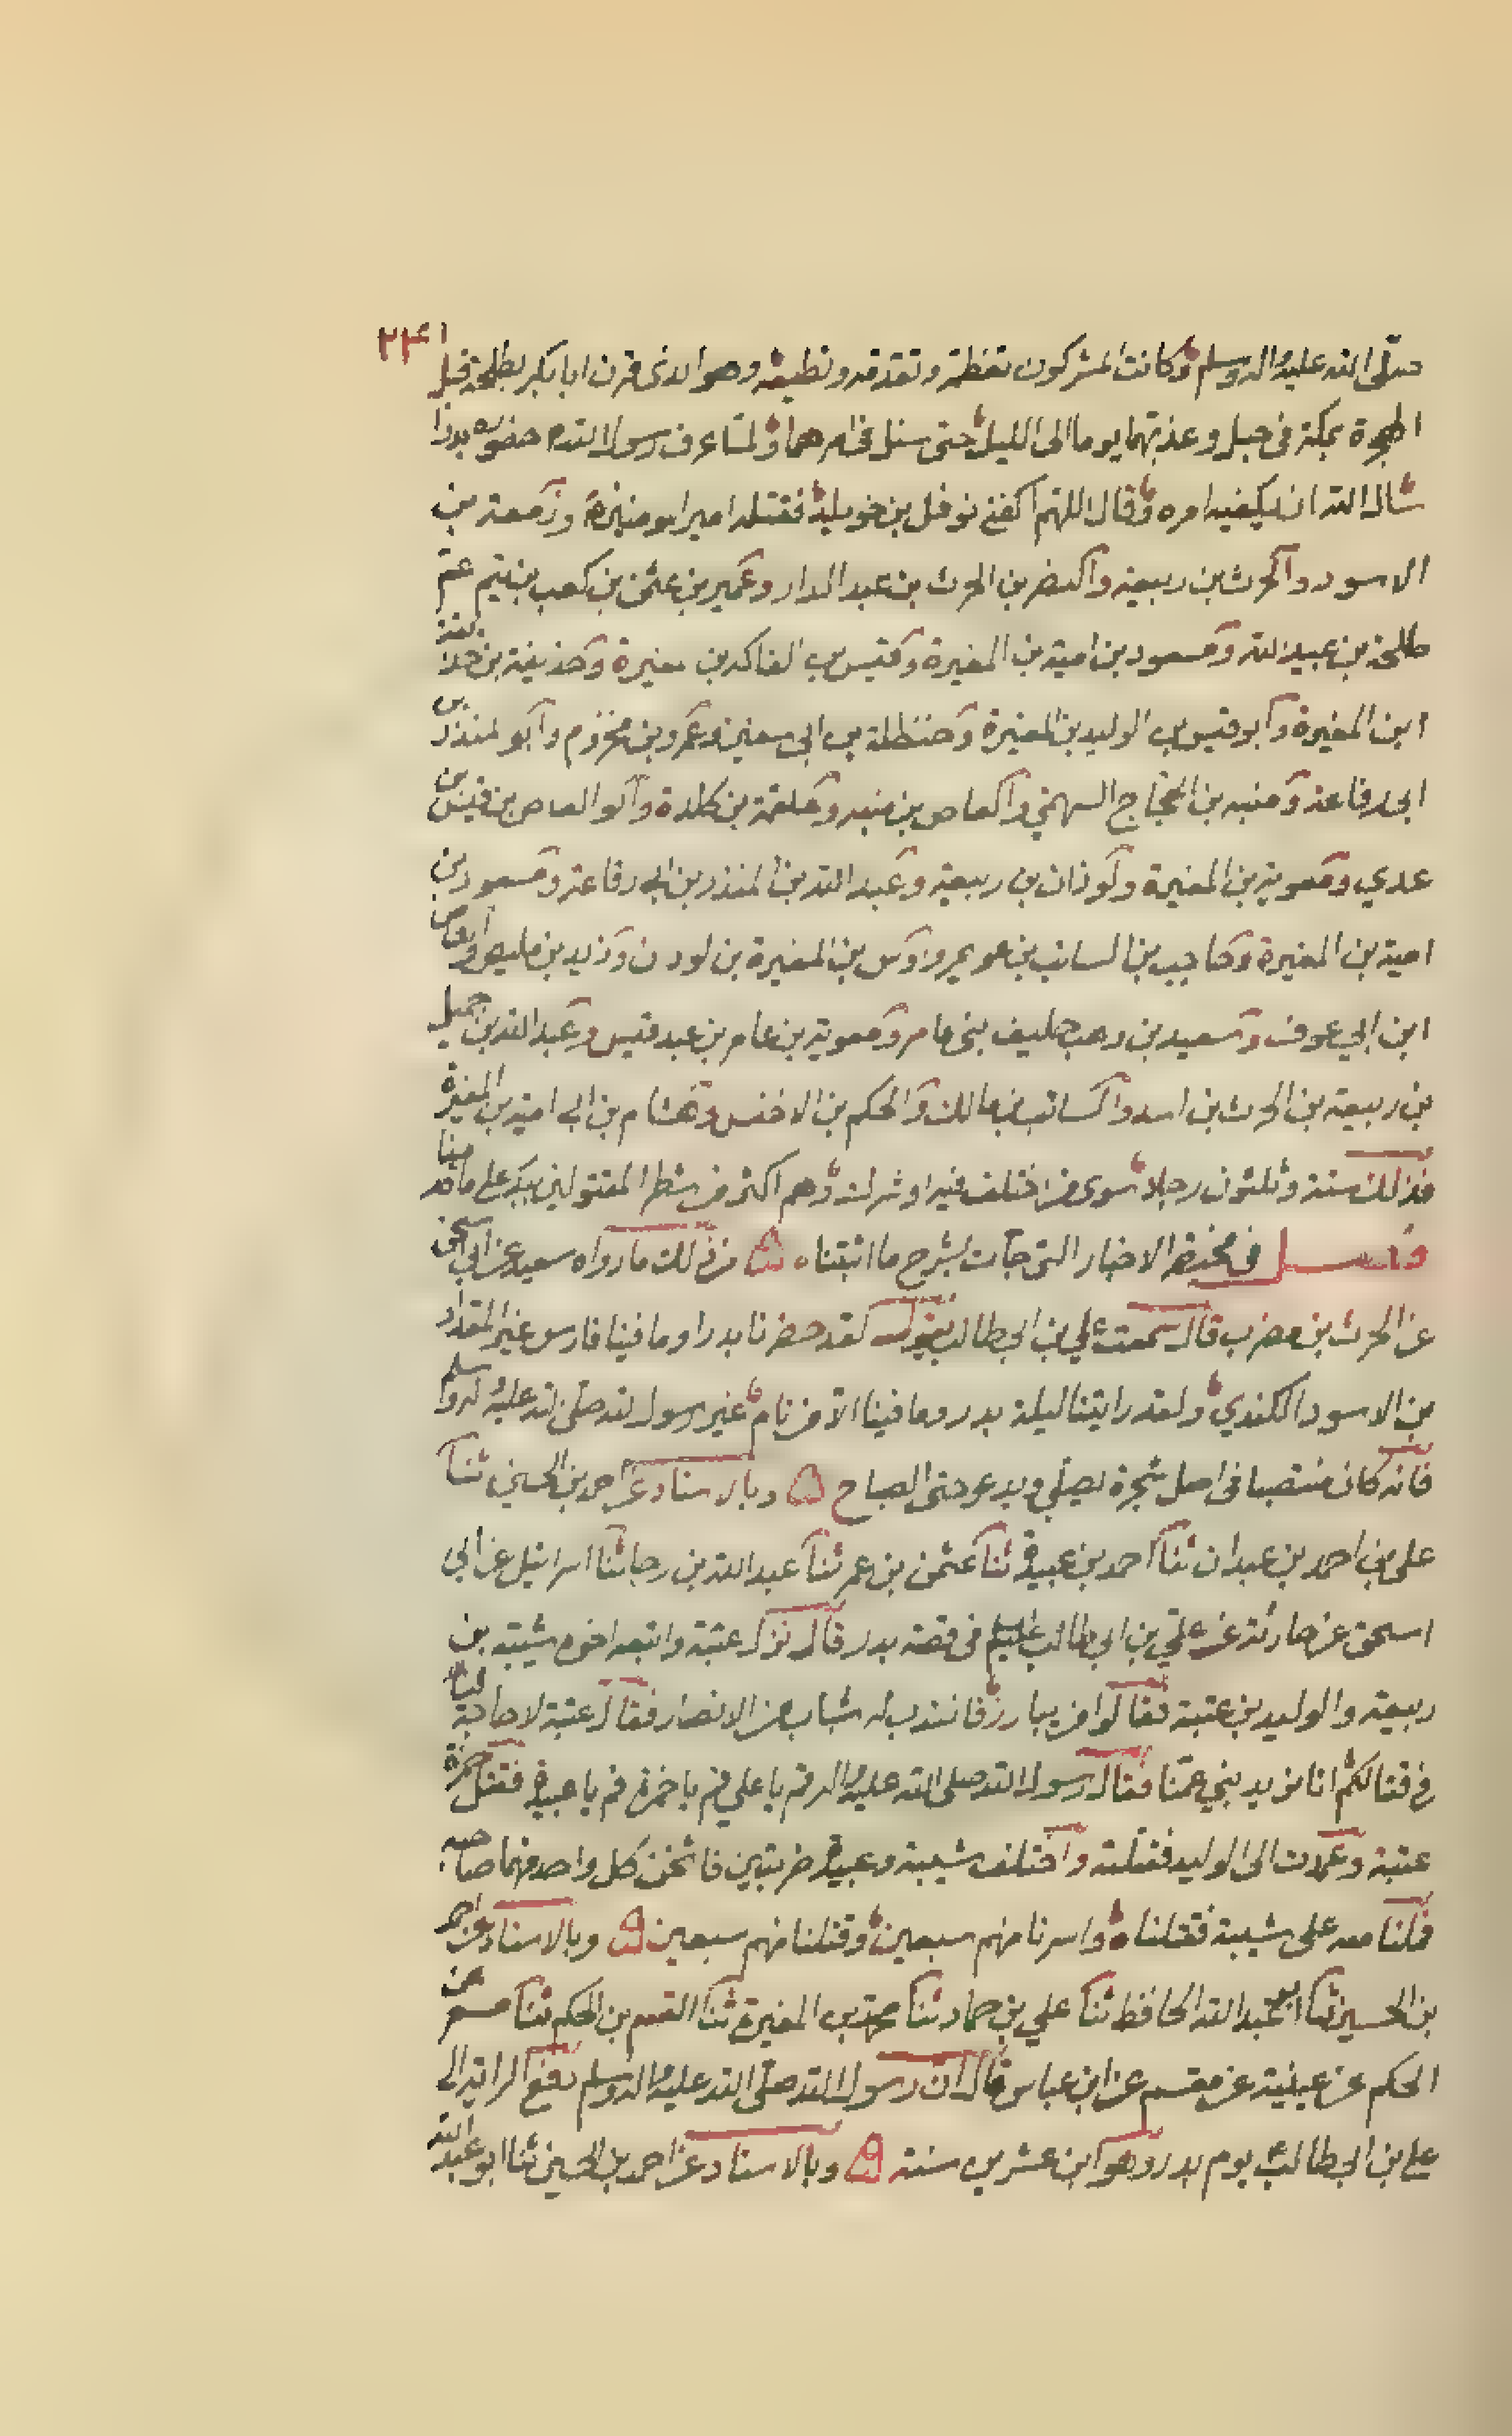 ٢٣٤
صلّى الله عليه واله وسلم وكانت المشركون تعظمه وتقدمه وتطيعه وهو الذى قرن ابا بكر بطلحة قبل
الهجرة بمكة فى حبل وعذبهما يوما الى الليل حتى سئل فى امرهما ولما عرف رسول الله حضوره بدرا
سال الله ان يكفيه امره وقال اللهم اكفنى نوفل بن خويلد فقتله امير المومنين وزمعة بن
الاسود والحرث بن ربيعة والنضر بن الحرث بن عبد الدار وعمير بن عثمن بن كعب بن تيم عم
طلحة بن عبيد الله ومسعود بن امية بن المغيرة وقيس بن الفاكه بن مغيرة وحذيفة بن حذيفة
ابن المغيرة وابو قيس بن الوليد بن المغيرة وحنظلة بن ابى سفين وعمرو بن مخزوم وابو المنذر بن
ابى رفاعة ومنبه بن الحجاج السهمي والعاص بن منبه وعلقمة بن كلدة وابو العاص بن قيس بن
عدي ومعوية بن المغيرة ولوذان بن ربيعة وعبد الله بن المنذر بن ابى رفاعة ومسعود بن
امية بن المغيرة وحاجب بن السائب بن عويمر واوس بن المغيرة بن لوذن وزيد بن مليص وعاص
ابن ابي عوف وسعيد بن وهب حليف بنى عامر ومعوية بن عامر بن عبد قيس وعبد الله بن جميل
بن ربيعة بن الحرث بن اسد والسائب بن مالك والحكم بن الاخنس وهشام بن ابى امية بن المغيرة
فذلك ستة وثلثون رجلا سوى من اختلف فيه او شرك وهم اكثر من شطر المقتولين ببدر على ما قدمنا
فصل فى مختصر الاخبار التى جآت بشرح ما اثبتناه فمن ذلك ما رواه سعيد عن ابي اسحق
عن الحرث بن مضرب قال سمعت علي بن ابيطالب يقول لقد حضرنا بدرا وما فينا فارس غير المقداد
بن الاسود الكندي ولقد رايتنا ليلة بدر وما فينا الا من نام غير رسول الله صلى الله عليه واله وسلم
فانه كان منتصبا فى اصل شجرة يصلي ويدعو حتى الصباح وبالاسناد عن احمد بن الحسين ثنا
على بن احمد بن عبدان ثنا احمد بن عبيد ثنا عثمن بن عمر ثنا عبد الله بن رجا ثنا اسرائيل عن ابي
اسحق عن حارثة عن علي بن ابى طالب عليه السلم فى قصة بدر قال نزل عتبة واتبعه اخوه شيبة بن
ربيعة والوليد بن عتبة فقالوا من يبارز فانتدب له شباب من الانصار فقال عتبة لا حاجة لنا
فى قتالكم انا نريد بني عمنا فقال رسول الله صلى الله عليه واله قم يا علي قم يا حمزة قم يا عبيدة فقتل حمزة
عتبة وعمدت الى الوليد فقتلته واختلف شيبة وعبيدة ضربتين فاثخن كل واحد منهما صاحبه
فملنا معه على شيبة فقتلناه واسرنا منهم سبعين وقتلنا منهم سبعين وبالاسناد عن احمد
بن الحسين ثنا ابو عبد الله الحافظ ثنا علي بن حماد ثنا محمد بن المغيرة ثنا القسم بن الحكم ثنا مسعر عن
الحكم عن عيينة عن مقسم عن ابن عباس قال ان رسول الله صلى الله عليه واله وسلم دفع الراية الى
على بن ابيطالب يوم بدر وهو ابن عشرين سنة وبالاسناد عن احمد بن الحسين ثنا ابو عبد الله